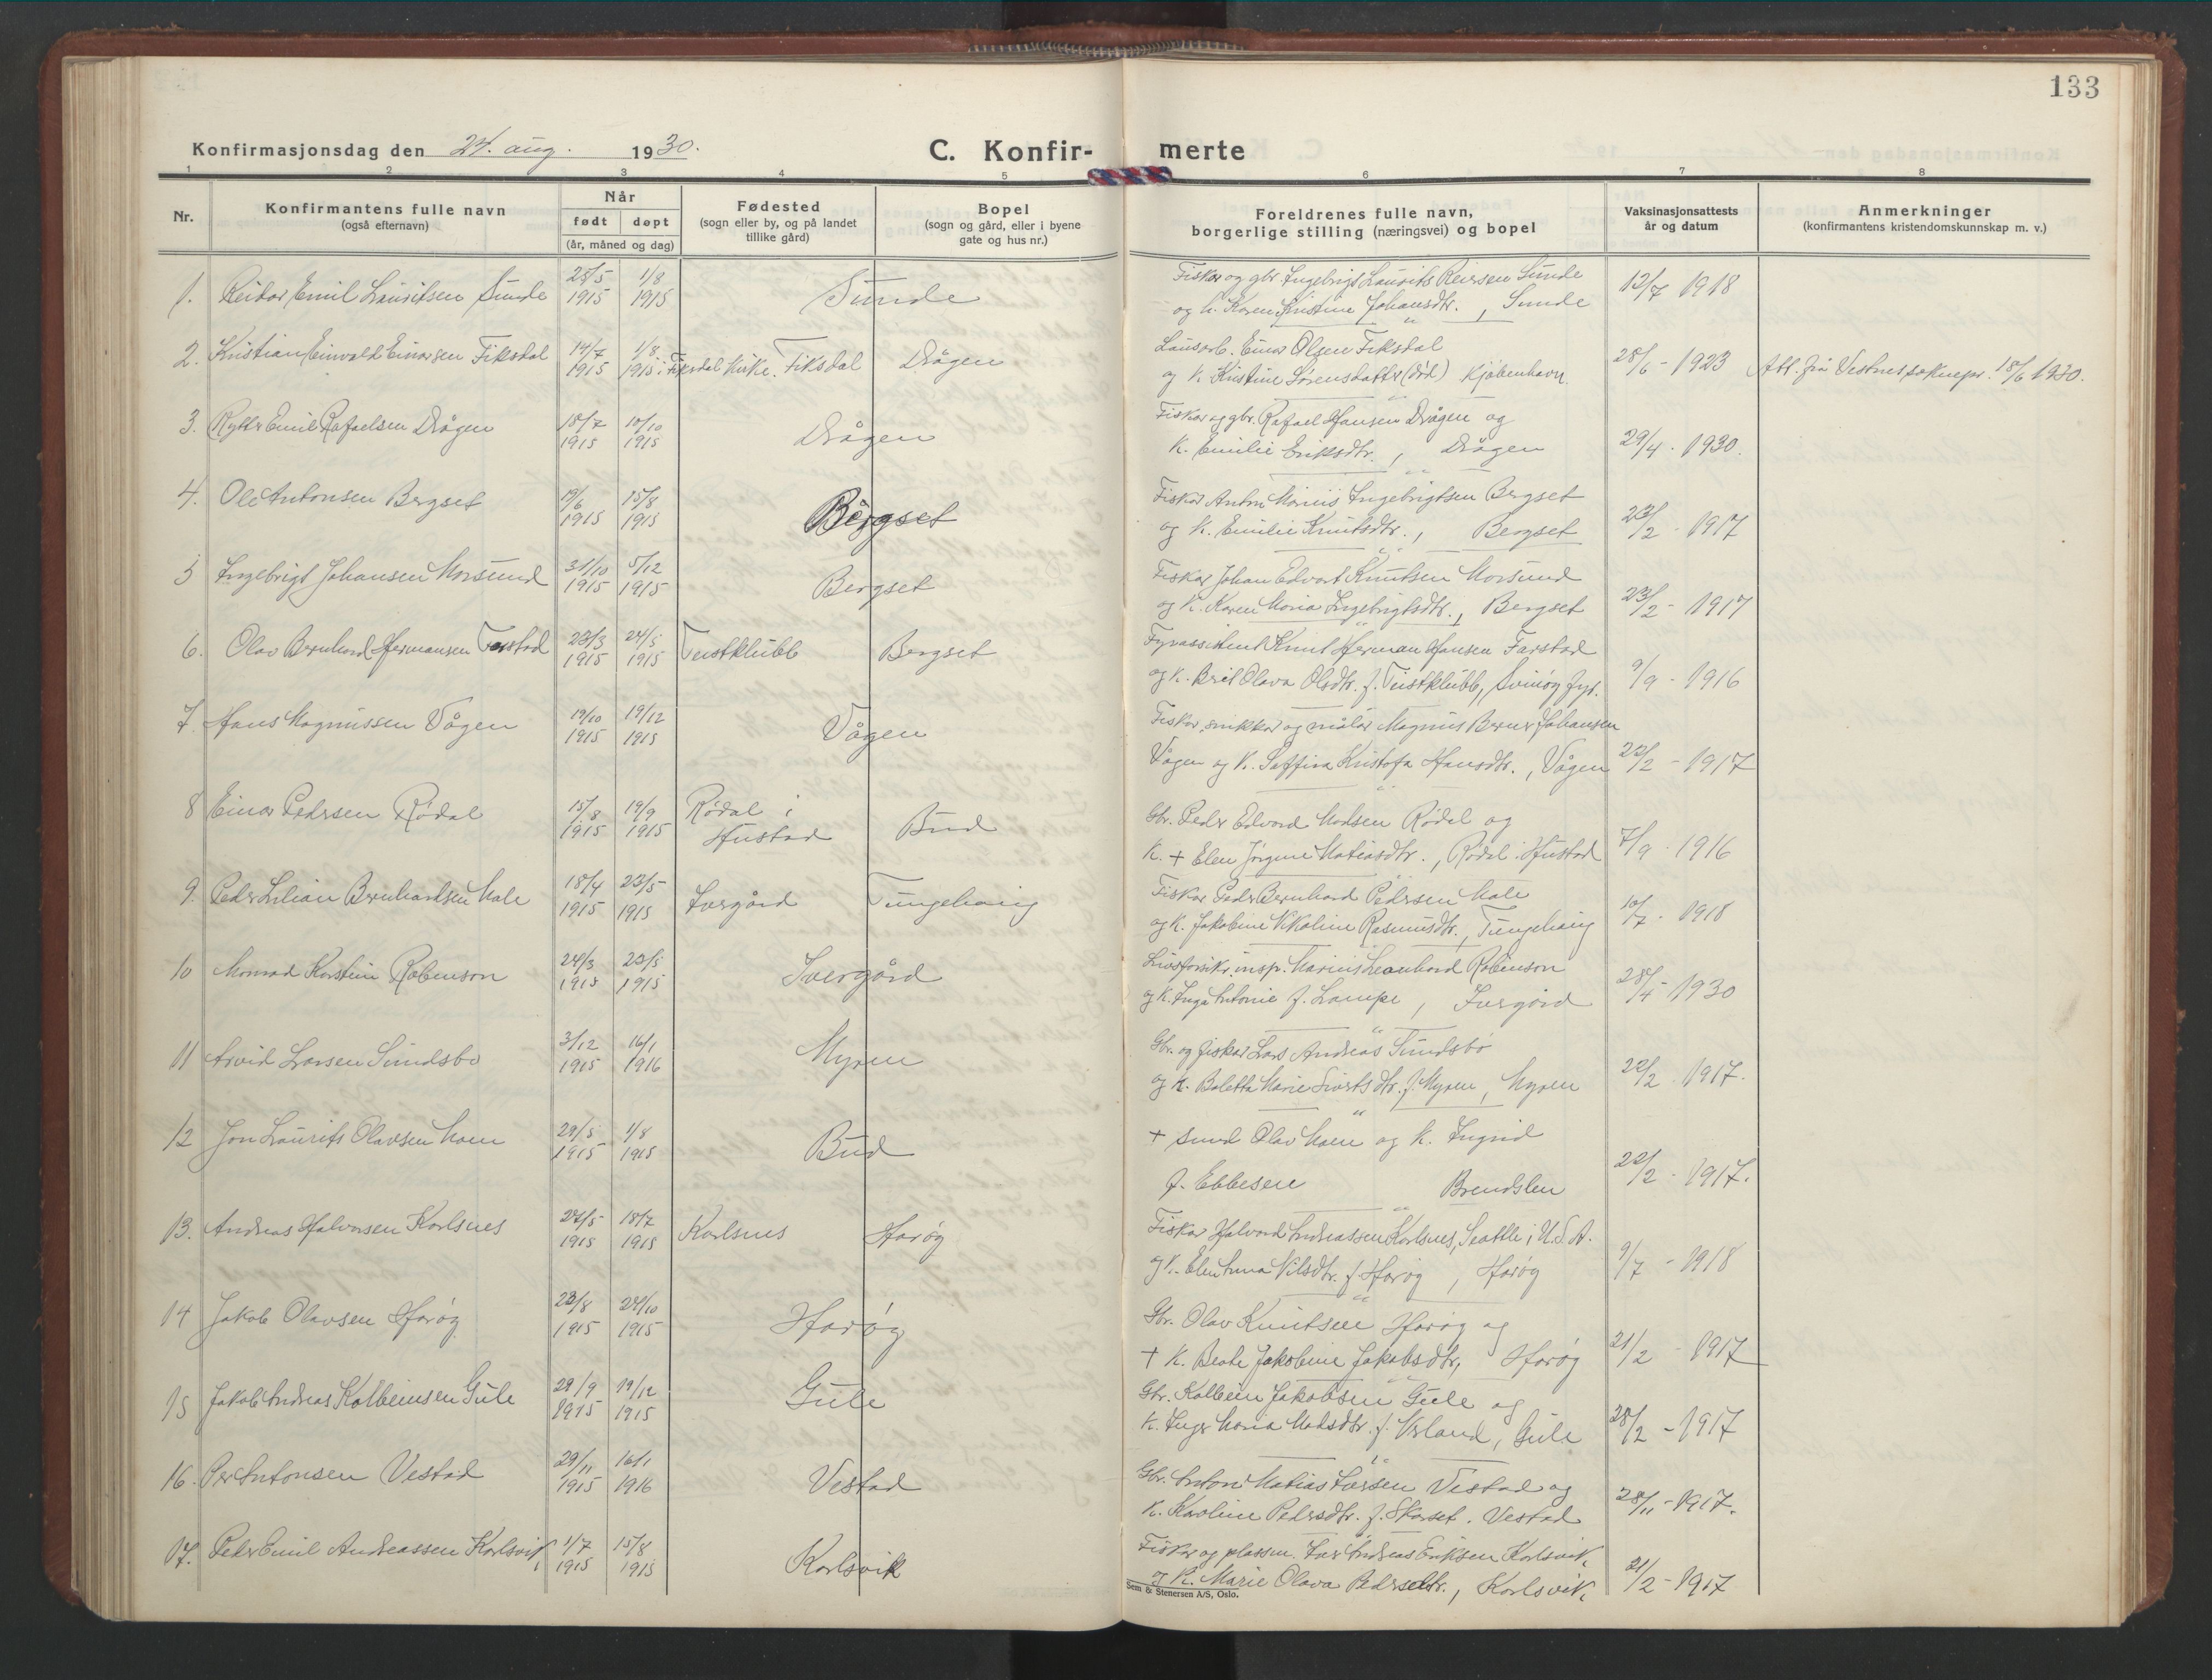 133
Konfirmasjonsdag den 24. aug. 1930.
C. Konfir- merte
1 2 3 4 5 6 7 8
Nr.
Konfirmantens fulle navn
(også efternavn)
Når
født døpt
(år, måned og dag)
Fødested
(sogn eller by, og på landet
tillike gård)
Bopel
(sogn og gård, eller i byene
gate og hus nr.)
Foreldrenes fulle navn,
borgerlige stilling (næringsvei) og bopel
Vaksinasjonsattests
år og datum
Anmerkninger
(konfirmantens kristendomskunnskap m. v.)
1. Reidar Emil Lauritsen Sunde 25/5 1915 1/8 1915 Sunde
Fiskar og gbr Ingebrigt Laurits Reiersen Sunde
og k. Karen Kristine Johansdtr., Sunde
12/7 1918
2. Kristian Einvald Einarsen Fiksdal 14/7 1915 1/8 1915 i Fiksdal kirke. Fiksdal Drågen
Lausarb. Einar Olsen Fiksdal
og k. Kristine Sørensdatter (død) Kjøbenhavn.
28/6 - 1923 Att. frå Vestnes soknepr. 18/6 1930.
3. Emil Rafaelsen Drågen 18/7 1915 10/10 1915 Drågen
Fiskar og gbr. Rafael Hansen Drågen og
k. Emilie Eriksdtr., Drågen
29/4 - 1930.
4. Ole Antonsen Bergset 19/6 1915 15/8 1915 Bergset
Fiskar Anton Marius Ingebrigtsen Bergset
og k. Emilie Knutsdtr., Bergset
23/2 - 1917
5 Ingebrigt Johansen Morsund 31/10 1915 5/12 1915 Bergset
Fiskar Johan Edvart Knutsen Morsund
og k. Karen Maria Ingebrigtsdtr., Bergset
23/2 - 1917
6. Olav Bernhard Hermansen Farstad 23/3 1915 24/5 1915 Teistklubb Bergset
Fyrassistent Knut Herman Hansen Farstad
og k. Brit Olava Olsdtr. f. Teistklubb, Svinøy fyr.
9/9 - 1916
7. Hans Magnussen Vågen 19/10 1915 19/12 1915 Vågen
Fiskar, snikkar og målar Magnus Berner Johansen
Vågen og k. Saffira Kristofa Hansdtr., Vågen
22/2 - 1917
8 Einar Pedersen Rødal 15/8 1915 19/9 1915 Rødal i Hustad Bud
Gbr. Peder Edvard Madsen Rødal og
k. + Elen Jørgine Matiasdtr., Rødal i Hustad
7/9 - 1916
9. Peder Lilian Bernhardsen Male 18/4 1915 23/5 1915 Ivergård Tungehaug
Fiskar Peder Bernhard Pedersen Male
og k. Jakobine Nikoline Rasmusdtr., Tungehaug
10/7 - 1918
10 Monrad Karstein Robenson 24/3 1915 23/5 1915 Ivergård
Livsforsikr.insp. Marius Leonhard Robenson
og k. Inga Antonie f. Lampe, Ivergård
28/4 - 1930
11 Arvid Larsen Sundsbø 3/12 1915 16/1 1916 Myren
Gbr. og fiskar Lars Andreas Sundsbø
og k. Boletta Marie Sivertsdtr. f. Myren, Myren
22/2 - 1917.
12 Jon Laurits Olavsen Moen 29/5 1915 1/8 1915 Bud
+ smed Olav Moen og k. Ingrid
f. Ebbesen Brendslen
22/2 - 1917.
13. Andreas Halvorsen Karlsnes 24/5 1915 18/7 1915 Karlsnes Harøy
Fiskar Halvard Andreassen Karlsnes, Seattle i U.S.A.
og k. Elen Anna Nilsdtr. f. Harøy, Harøy
9/7 - 1918
14 Jakob Olavsen Harøy 22/8 1915 24/10 1915 Harøy
Gbr. Olav Knutsen Harøy og
+ k. Beate Jakobine Jakobsdtr, Harøy
21/2 - 1917
15 Jakob Andreas Kolbeinsen Gule 29/9 1915 19/12 1915 Gule
Gbr. Kolbein Jakobsen Gule og
k. Inger Maria Madsdtr. f. Urland, Gule
28/2 - 1917
16. Per Antonsen Vestad 29/11 1915 16/1 1916 Vestad
Gbr. Anton Matias Iversen Vestad og
k. Karoline Pedersdtr. f. Skarset. Vestad
28/11 - 1917.
17. Peder Emil Andreassen Karlsvik, 1/7 1915 15/8 1915 Karlsvik
Fiskar og plassm. Ivar Andreas Eriksen Karlsvik,
og k. Marie Olava Pedersdtr., Karlsvik,
21/2 - 1917
Sem & Stenersen A/S, Oslo.